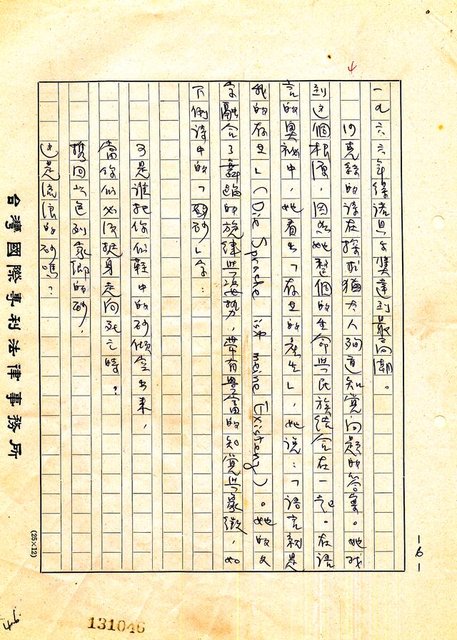 4
-6-
一九六六年得諾貝尔獎達到最高潮。
沙克絲的詩在探求猶太人殉道知覺問題的答案。她找
到這個根源，因為她整個的生命與民族結合在一起。在語
言的奧秘中，她看出「存在的產生」，她說：「語言就是
我的存在」(Die Sprache ist meine Existenz)。她的文
字融合了舞蹈的旋律與姿勢，帶有豐富的知覺與象徵，如
下例詩中的「砂」字：
可是誰把你們鞋中的砂傾空出來，
當你們必須起身走向死亡時？
携回以色列家鄉的砂，
這是流浪的砂嗎？
台灣國際專利法律事務所
(25×12)
131046